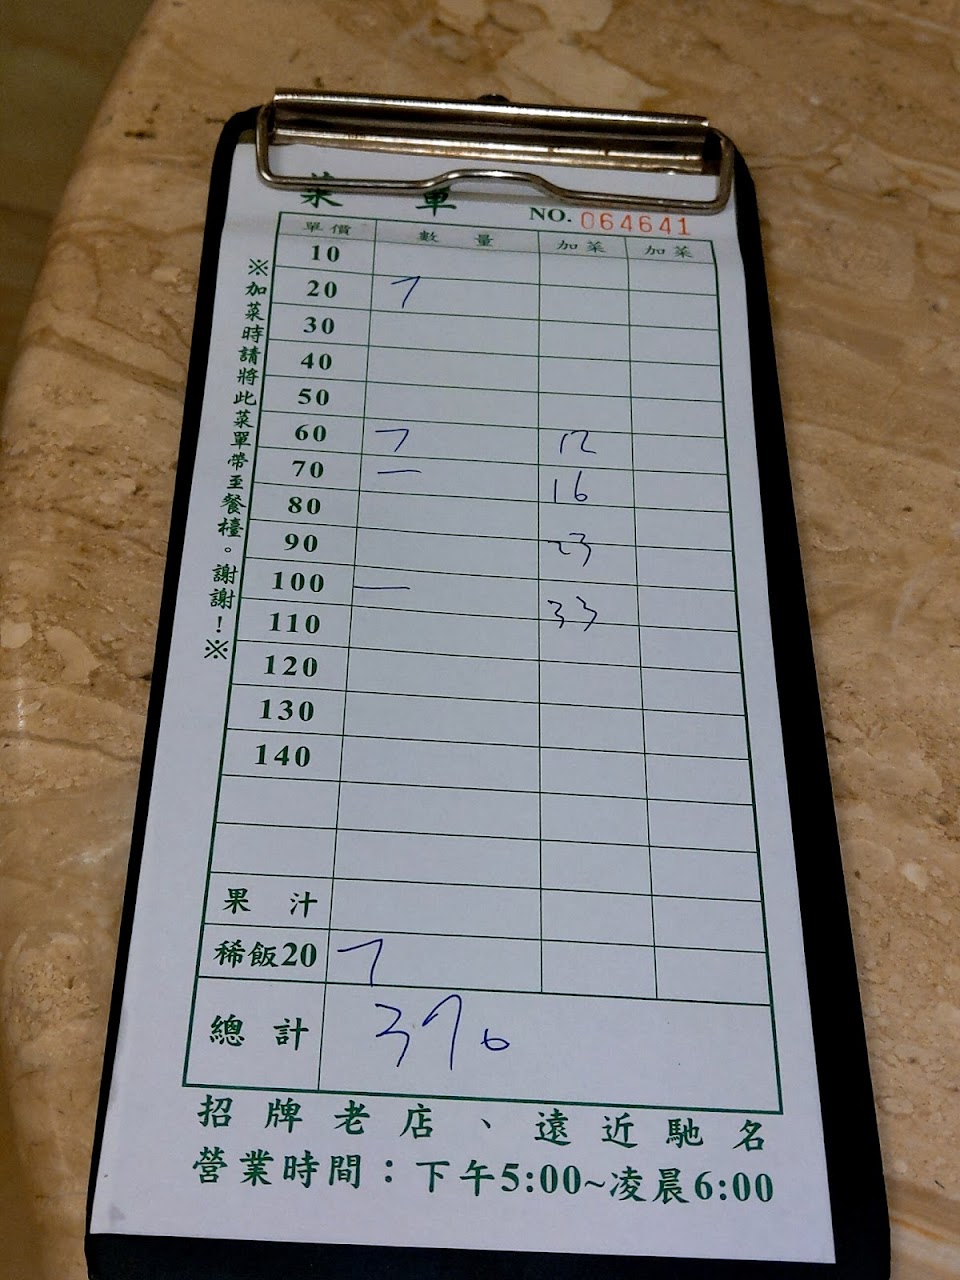 菜 單 NO. 064641
單價 數量 加菜 加菜
10
20 ㇇
30
40
50
60 ㇇ 12
70 一 16
80
90 23
100 一
110 33
120
130
140
果汁
稀飯20 ㇇
總計 370
招牌老店、遠近馳名
營業時間：下午5:00~凌晨6:00
※加菜時請將此菜單帶至餐檯。謝謝！※